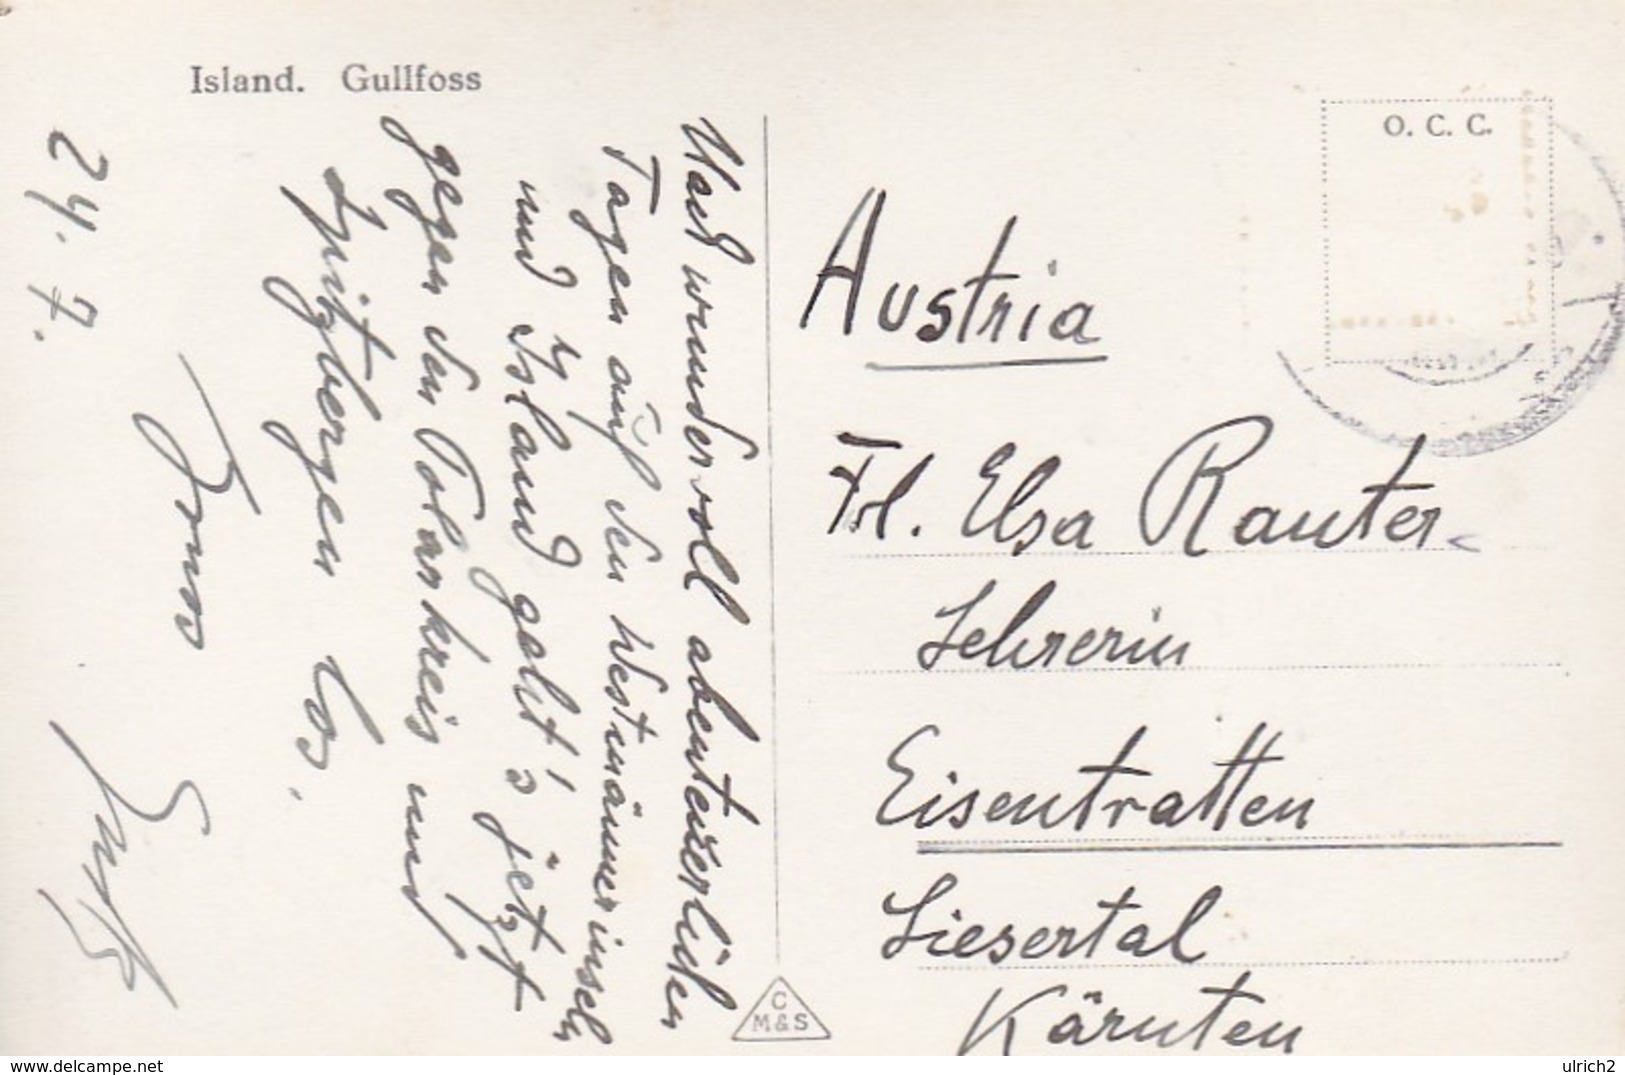 Island. Gullfoss
24. 7.
Nach wundervoll abenteuerlichen
Tagen auf den Westmännerinseln
und Island geht's jetzt
gegen den Polarkreis und
Spitzbergen los.
O. C. C.
Austria
Frl. Elsa Rauter
Lehrerin
Eisentratten
Liesertal
Kärnten
C
M & S
delcampe.net
ulrich2